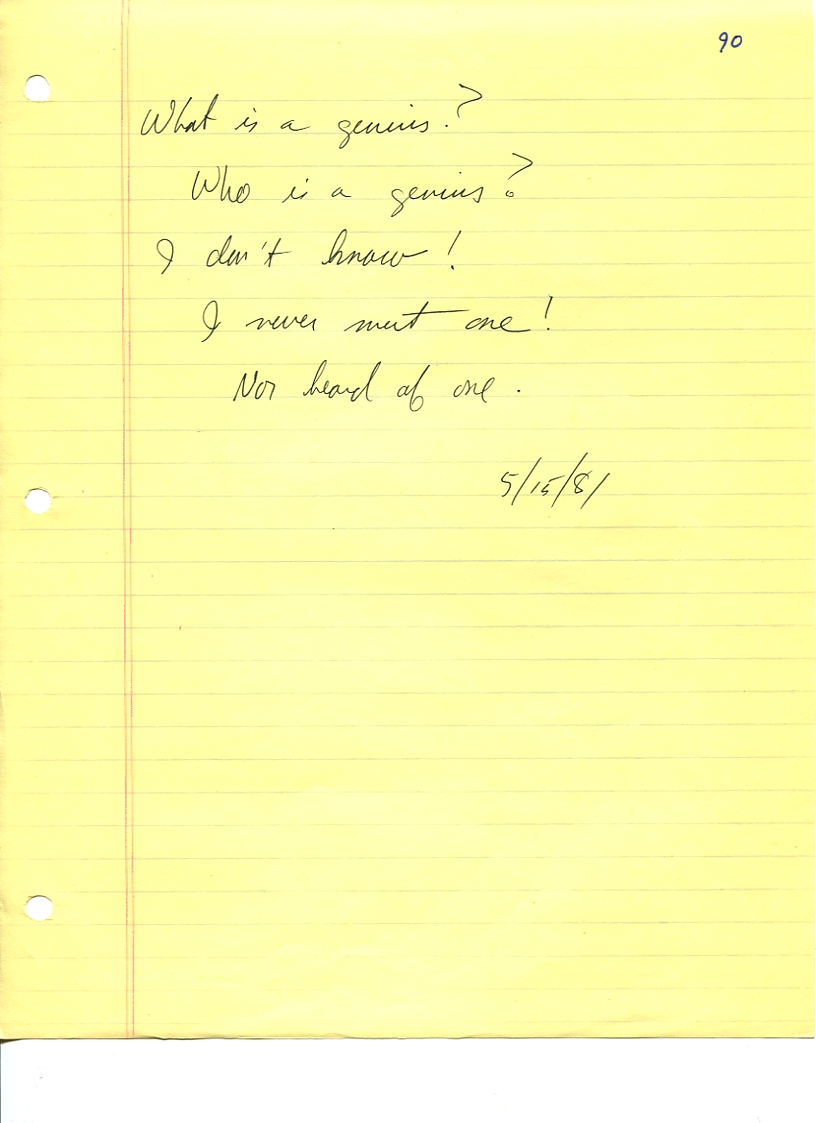 90
What is a genius?
Who is a genius?
I don't know!
I never met one!
Nor heard of one.
5/15/81